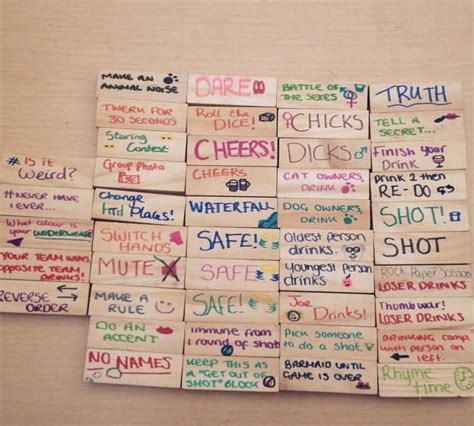 # Is it
Weird?
#Never have
I ever..
What colour is
your UNDERWEAR?
YOUR TEAM WINS,
OPPOSITE TEAM,
DRINKS!
REVERSE
ORDER
MAKE AN
ANIMAL NOISE
TWERK FOR
30 SECONDS
Staring
Contest
Group Photo
Change
Places!
SWITCH
HANDS
MUTE
MAKE A
RULE
DO AN
ACCENT
NO NAMES
DARE
Roll the
DICE!
CHEERS!
CHEERS
WATERFALL
SAFE!
SAFE
SAFE!
immune from
1 round of shot
KEEP THIS AS
A "GET OUT OF
SHOT" BLOCK
BATTLE OF
THE SEXES
CHICKS
DICKS
CAT OWNERS,
DRINK
DOG OWNERS,
DRINK
Oldest person
drinks.
Youngest person
drinks
Joe
Drinks!
Pick someone
to do a shot
BARMAID UNTIL
GAME IS OVER
TRUTH
TELL A
SECRET...
Finish your
Drink
Drink 2 then
RE-DO
SHOT!
SHOT
Rock Paper Scissors
LOSER DRINKS
Thumb war!
LOSER DRINKS
DRINKING COMP.
WITH PERSON ON
left.
Rhyme
time